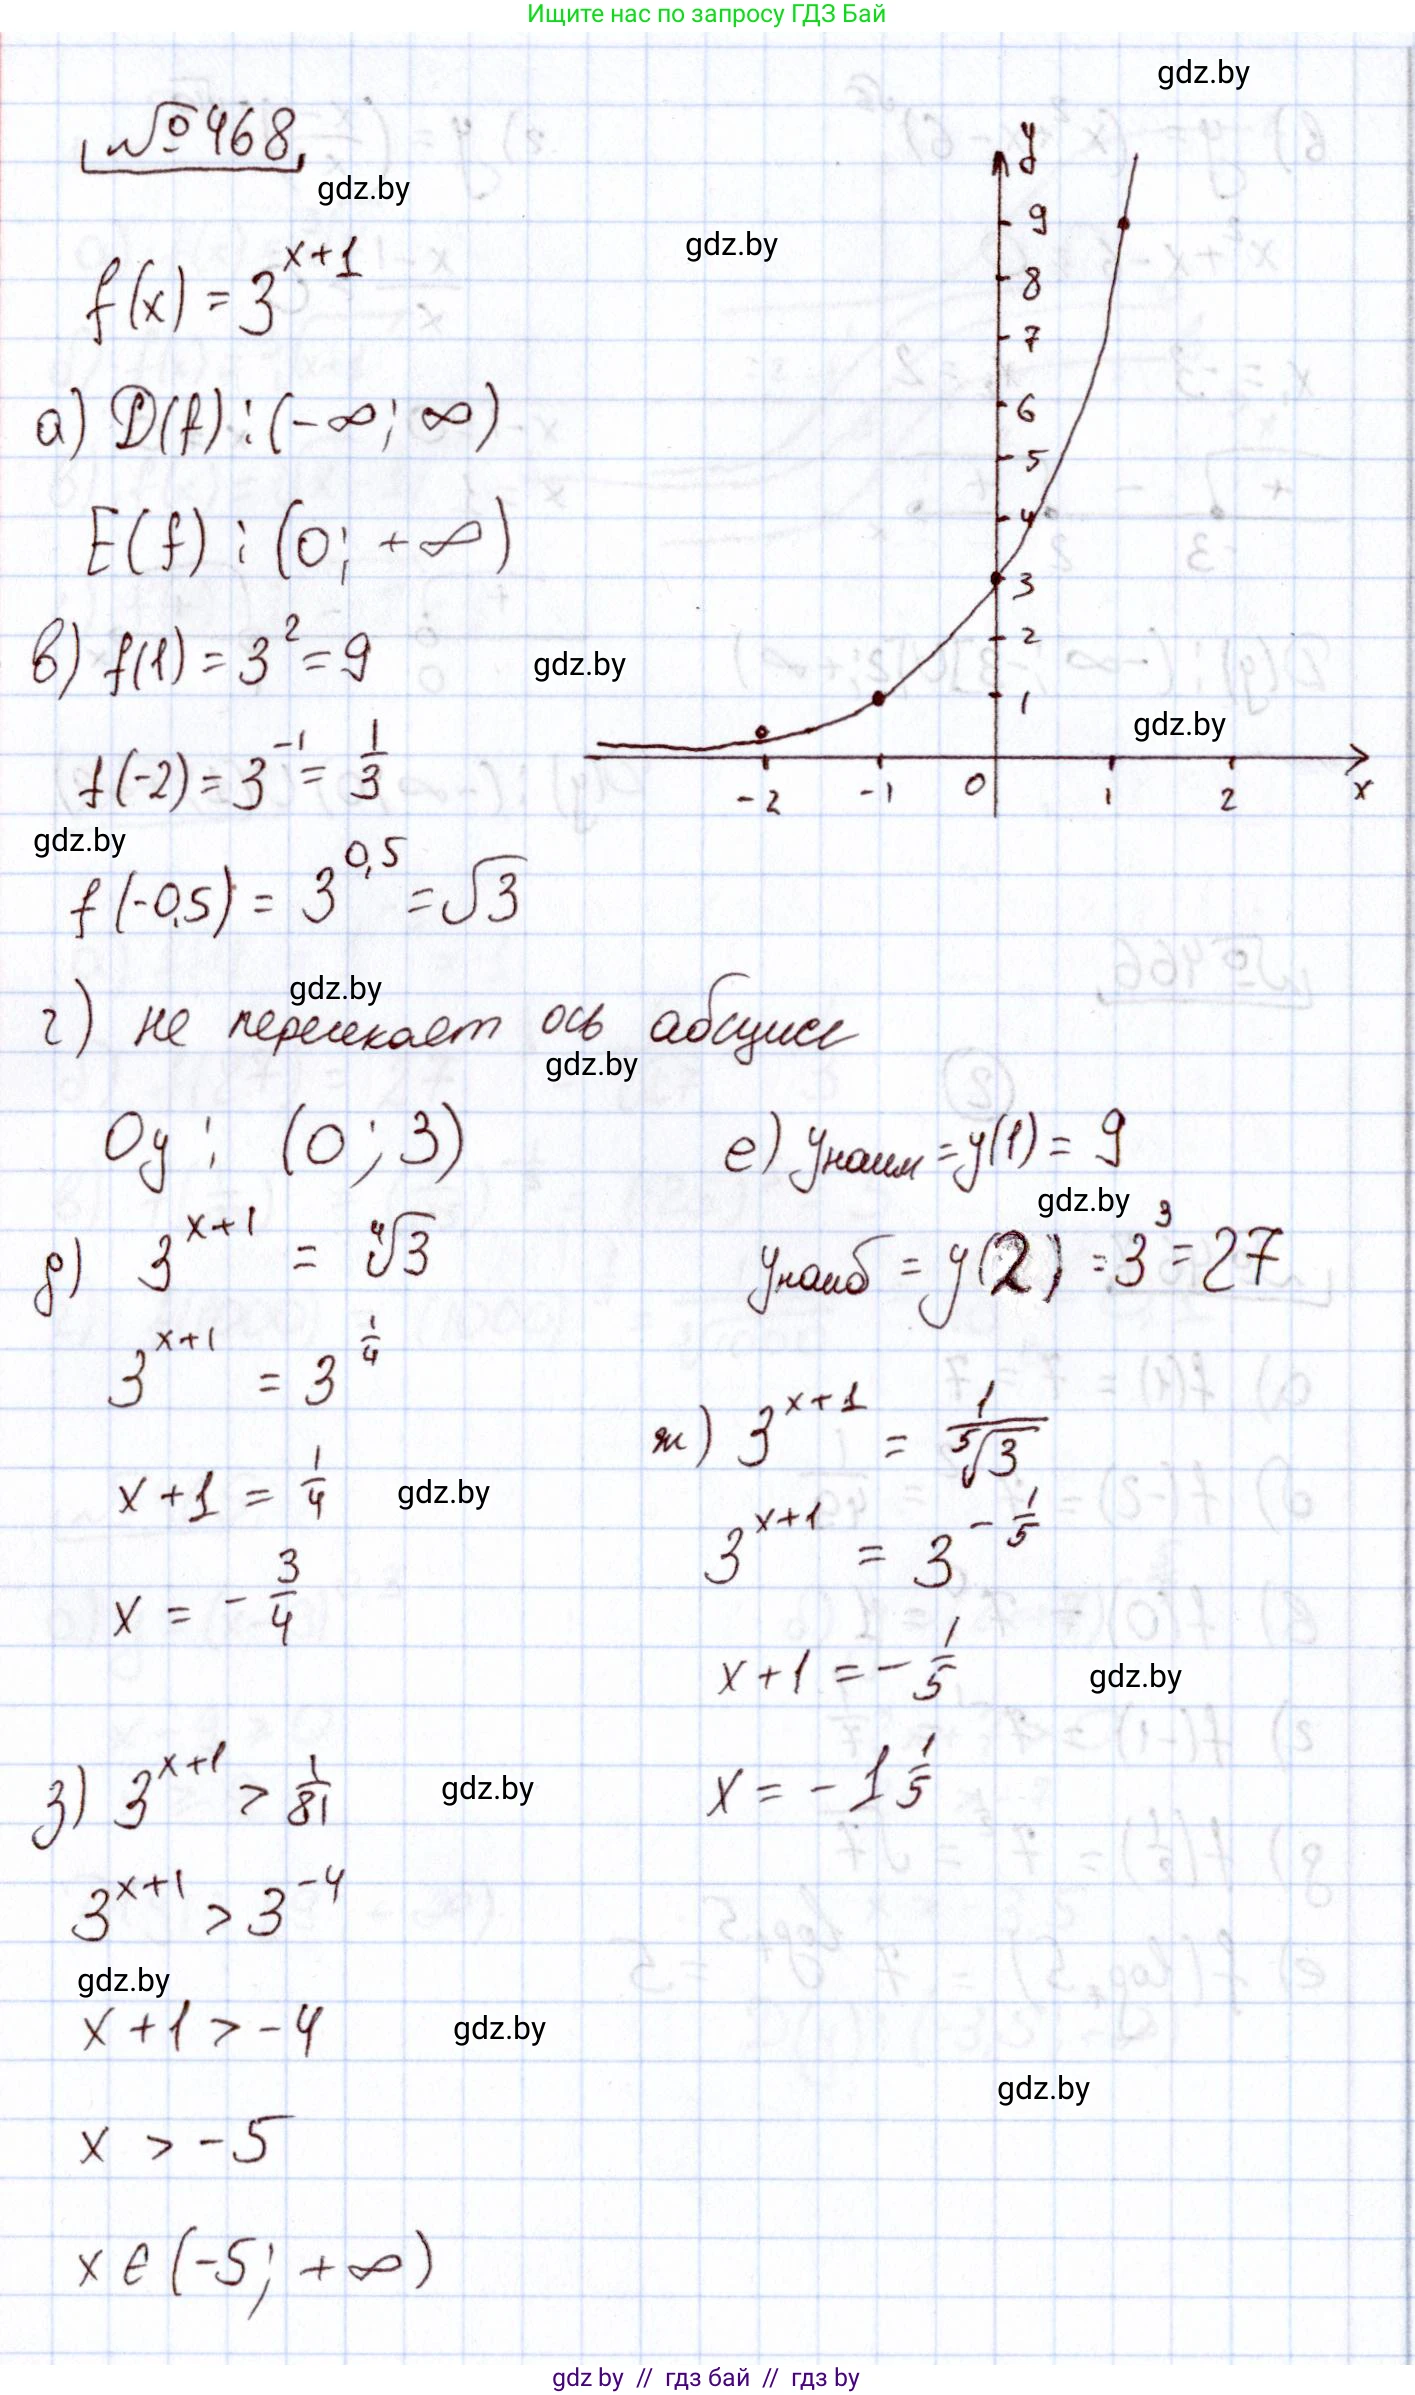 Ищите нас по запросу ГДЗ Бай
gdz.by
№468
gdz.by
gdz.by
f(x) = 3^{x+1}
а) D(f) : (-∞; ∞)
E(f) : (0; +∞)
в) f(1) = 3^2 = 9
gdz.by
f(-2) = 3^{-1} = 1/3
gdz.by
f(-0,5) = 3^{0,5} = √3
y
9
8
7
6
5
4
3
2
1
gdz.by
-2 -1 0 1 2 x
gdz.by
г) не пересекает ось абсцисс
gdz.by
Oy : (0; 3)
д) 3^{x+1} = ⁴√3
3^{x+1} = 3^{1/4}
x+1 = 1/4
gdz.by
x = -3/4
е) yнаим = y(1) = 9
gdz.by
yнаиб = y(2) = 3^3 = 27
ж) 3^{x+1} = 1/⁵√3
3^{x+1} = 3^{-1/5}
x+1 = -1/5
gdz.by
x = -1 1/5
з) 3^{x+1} > 1/81
gdz.by
3^{x+1} > 3^{-4}
gdz.by
x+1 > -4
gdz.by
gdz.by
x > -5
x ∈ (-5; +∞)
gdz by // гдз бай // гдз by